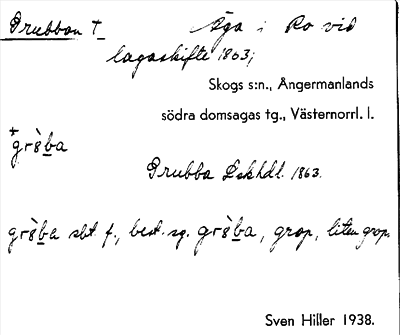 Grubban † Äga i Ro vid
lagaskifte 1863;
Skogs s:n., Ångermanlands
södra domsagas tg., Västernorrl. l.
gròba
Grubba Lskhdl. 1863.
gròba sbt. f., best. sg. gròba, grop, liten grop.
Sven Hiller 1938.